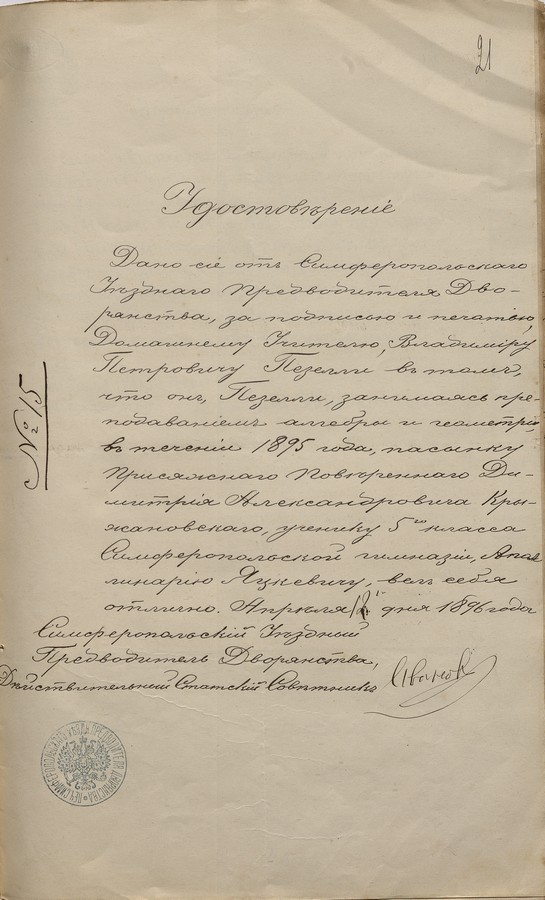 21
Удостовѣреніе
Дано сіе отъ Симферопольскаго
Уѣзднаго Предводителя Дво-
рянства, за подписью и печатью,
Домашнему Учителю, Владиміру
Петровичу Пезелли въ томъ,
что онъ, Пезелли, занимаясь пре-
подаваніемъ алгебры и геометріи
въ теченіи 1895 года, пасынку
Присяжнаго Повѣреннаго Ди-
митрія Александровича Кры-
жановскаго, ученику 5го класса
Симферопольской гимназіи, Апол
линарію Яцкевичу, велъ себя
отлично. Апрѣля 12 дня 1896 года
№ 15
Симферопольскій Уѣздный
Предводитель Дворянства,
Дѣйствительный Статскій Совѣтникъ